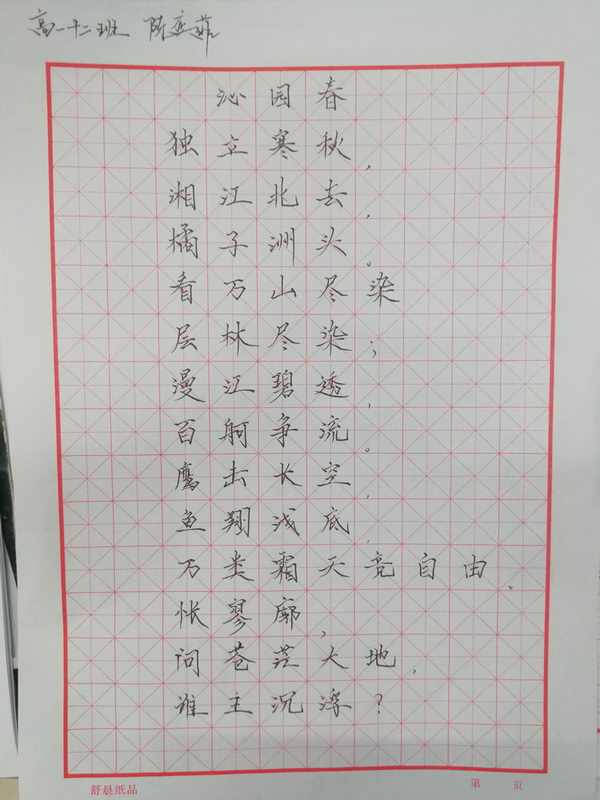 高一十二班 陈
沁园春
独立寒秋，
湘江北去，
橘子洲头。
看万山尽染
层林尽染；
漫江碧透，
百舸争流。
鹰击长空，
鱼翔浅底，
万类霜天竞自由。
怅寥廓，
问苍茫大地，
谁主沉浮？
舒晨纸品 第 页